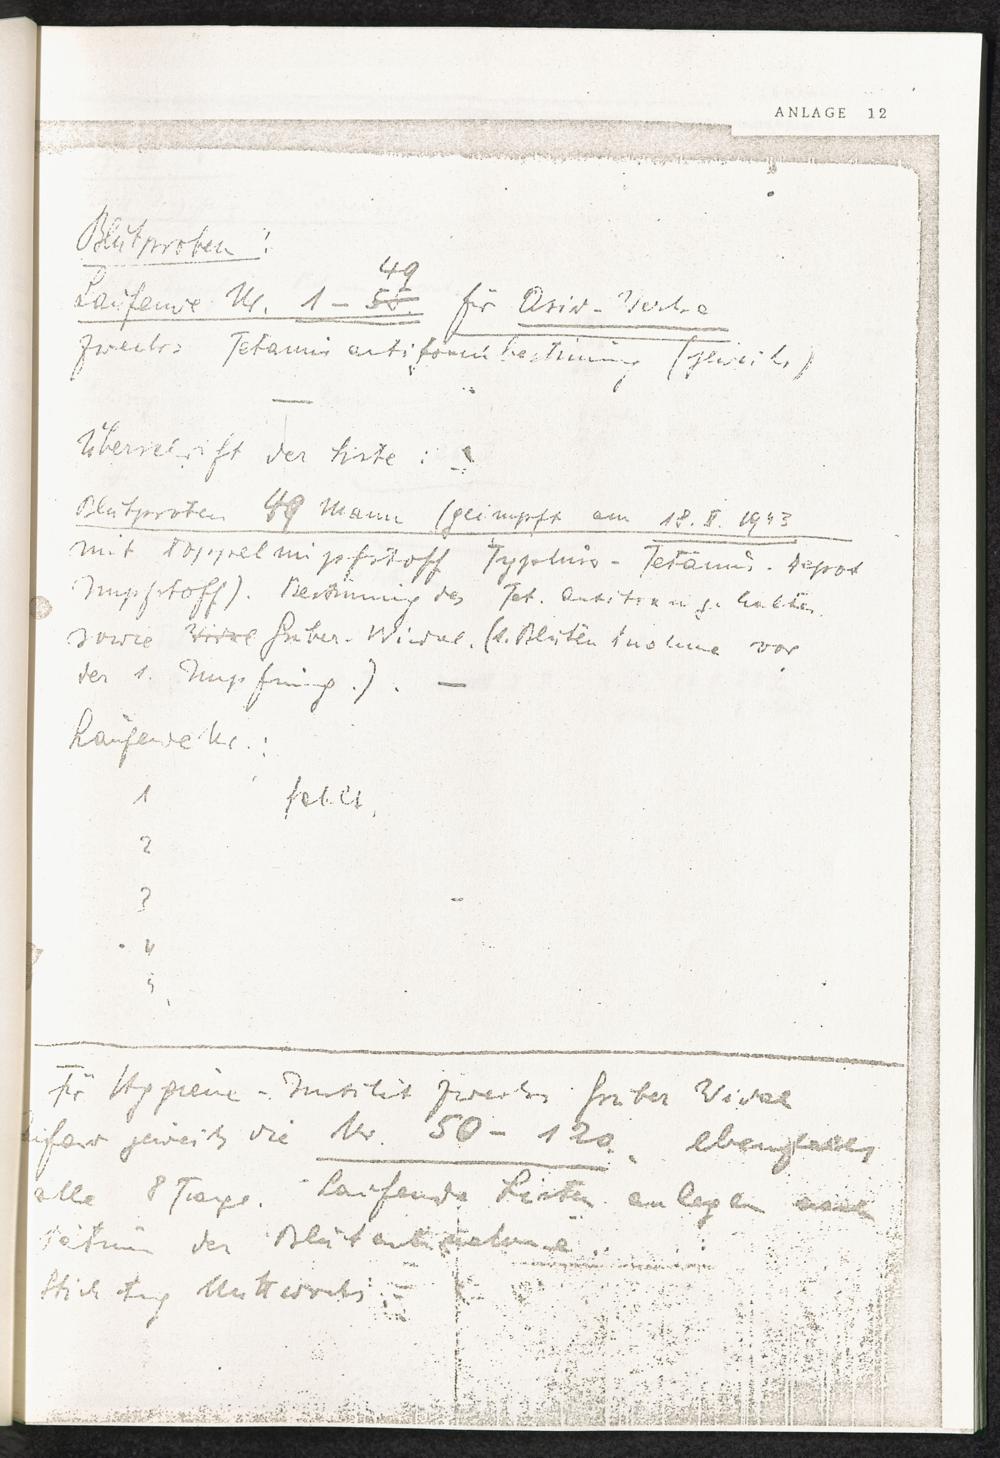 ANLAGE 12
Blutproben!
49
Laufende Nr. 1 – 55. für Asid-Werke
zwecks Tetanus antitoxin bestimmung
Überschrift der Liste :
Blutproben 49 Mann (geimpft am 18. II. 1943
mit Doppelimpfstoff Typhus - Tetanus - Depot
Impfstoff). Bestimmung des Tet. antitoxin gehaltes
sowie Widal Gruber-Widal. (1. Blutentnahme vor
der 1. Impfung.). —
Laufende Nr. :
1 fehlt.
2
3
4
5
Für Hygiene - Institut zwecks Gruber Widal
jeweils die Nr. 50 - 120. ebenfalls
alle 8 Tage. Laufende Listen anlegen nach
Datum der Blutentnahme.
Stichtag Mittwochs